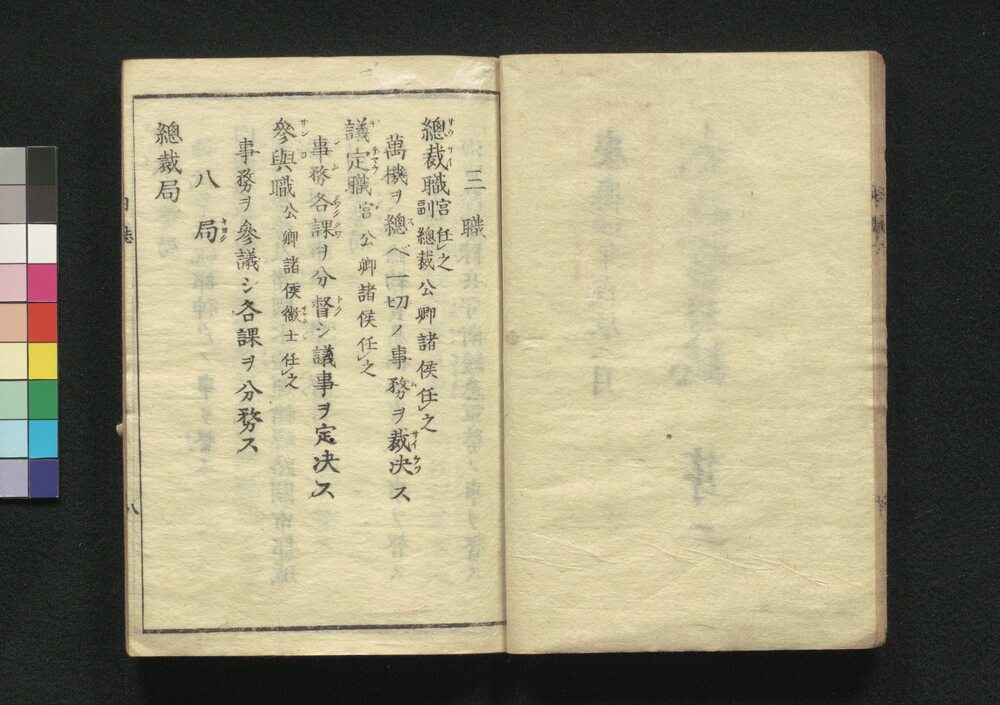 三職
總裁職 宮任レ之
副總裁公卿諸侯任レ之
萬機ヲ總ベ一切ノ事務ヲ裁決ス
議定職 宮公卿諸侯任レ之
事務各課ヲ分督シ議事ヲ定決ス
參與職 公卿諸侯徴士任レ之
事務ヲ參議シ各課ヲ分務ス
八局
總裁局